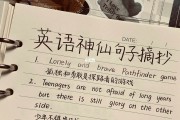 DATE:
英语神仙句子摘抄
1. Lonely and brave Pathfinder game
孤独和勇敢是探路者的游戏
2. Teenagers are not afraid of long years
but there is still glory on the other
side.